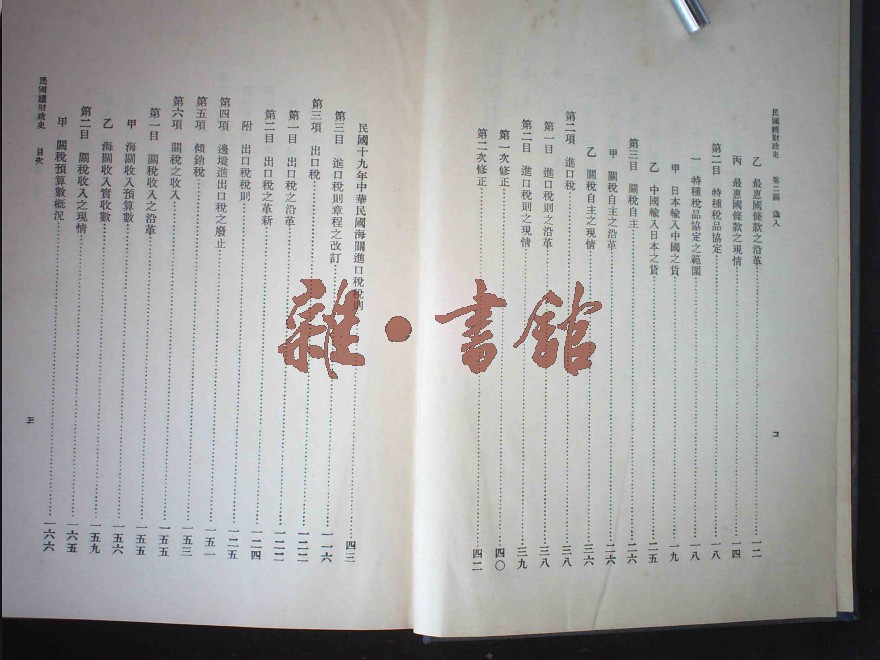 民國續財政史 第二編 歲入
乙 最惠國條款之沿革 一二
丙 最惠國條款之現情 一四
第二目 特種稅品協定 一八
一 特種稅品協定之範圍 一八
甲 日本輸入中國之貨 一九
乙 中國輸入日本之貨 二五
第三目 關稅自主 二六
甲 關稅自主之沿革 二六
乙 關稅自主之現情 三六
第二項 進口稅 三八
第一目 進口稅則之沿革 三八
第二目 進口稅則之現情 三九
第一次修正 四〇
第二次修正 四二
民國十九年中華民國海關進口稅稅則 四三
第三目 進口稅則章程之改訂 一一六
第三項 出口稅 一二二
第一目 出口稅之沿革 一二二
第二目 出口稅之革新 一二四
附 出口稅稅則 一二五
第四項 邊境進出口稅之廢止 一五一
第五項 傾銷稅 一五三
第六項 關稅之收入 一五五
第一目 關稅收入之沿革 一五五
甲 海關收入預算數 一五六
乙 海關收入實收數 一五九
第二目 關稅收入之現情 一六五
甲 關稅預算數概況 一六六
民國續財政史 目次
雜·書館